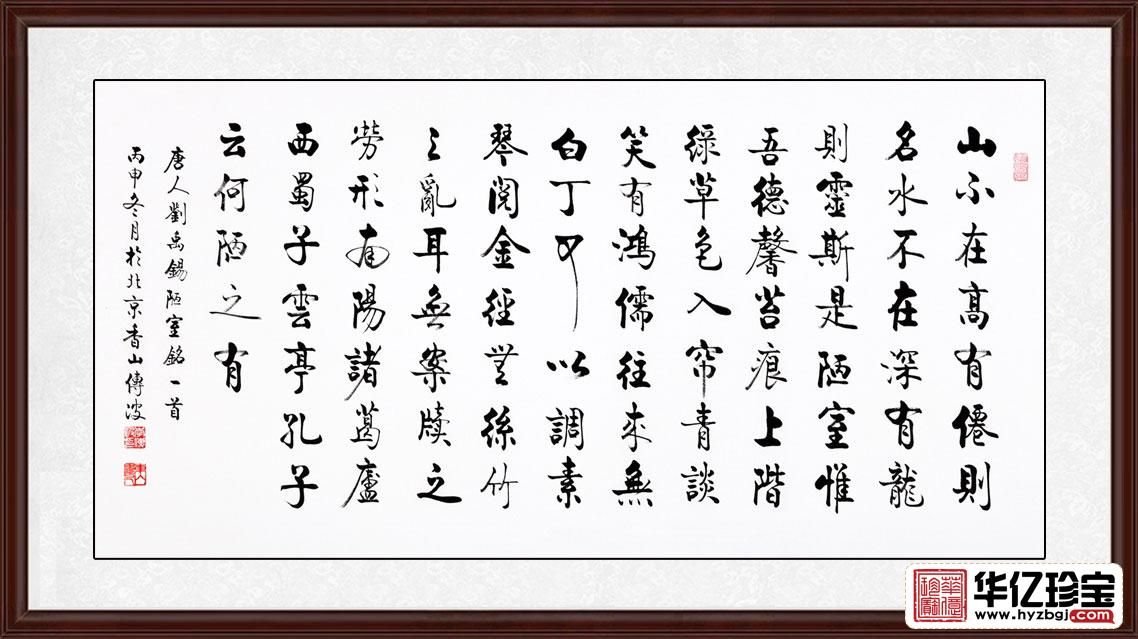 山不在高有僊則
名水不在深有龍
則靈斯是陋室惟
吾德馨苔痕上階
綠草色入帘青談
笑有鴻儒往來無
白丁可以調素
琴閱金經無絲竹
之亂耳無案牘之
勞形南陽諸葛廬
西蜀子雲亭孔子
云何陋之有
唐人劉禹錫陋室銘一首
丙申冬月於北京香山傳波
華億珍寶
华亿珍宝
www.hyzbgj.com